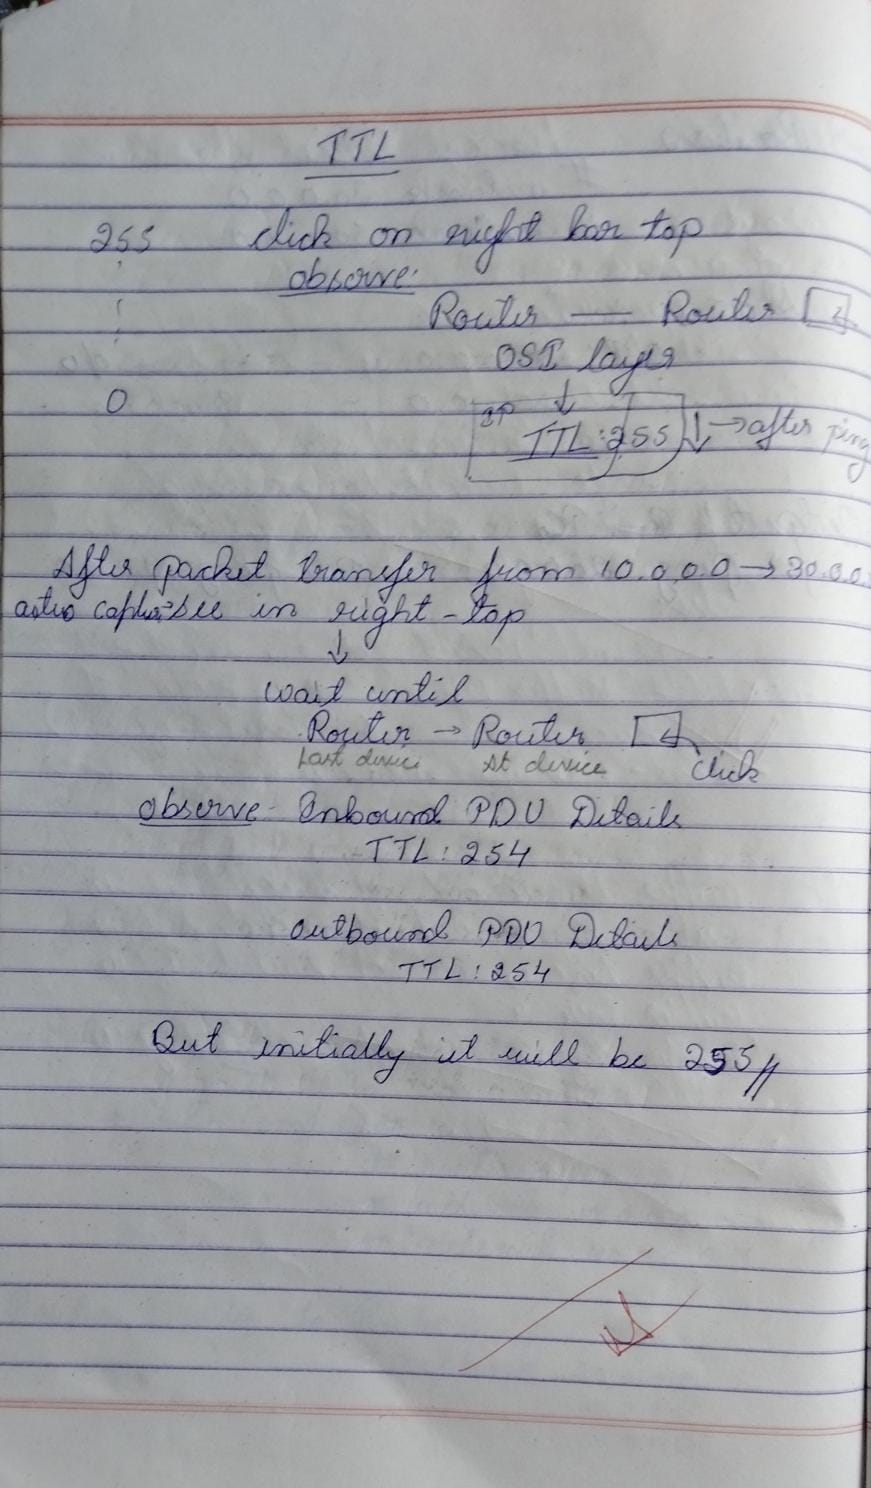 TTL
255 click on right bar top
observe:
Router — Router
OSI layer
↓
0
IP
TTL:255 ↓ → after ping
After packet transfer from 10.0.0.0 → 30.0.0
see in right-top
↓
wait until
Router → Router
Last device At device click
observe- Inbound PDU Details
TTL:254
outbound PDU Details
TTL:254
But initially it will be 255//